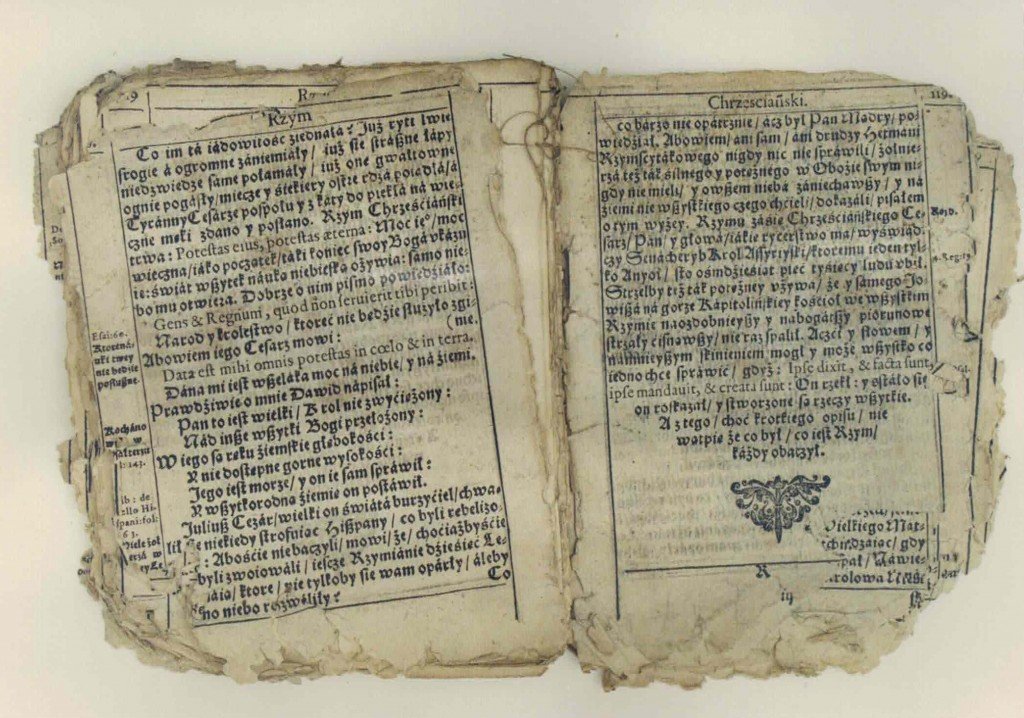 Rzym
Co im tá iádowitość ziednáłá? Już ryti lwie
srogie á ogromne zániemiáły/ iuż sie stráßne łápy
niedzwiedze sáme połamáły/ iuż one gwałtowne
ognie pogásły/ miecze y siekiery ostre rdzá poiádłá/ á
Tyránny Cesarze pospołu z káty do piekłá ná wie-
czne męki zdano y posłano. Rzym Chrześciáński
trwa: Potestas eius, potestas æterna: Moc ie°/ moc
wieczna/ iáko początek/ tak i koniec swoy Bogá vkázu
ie: świát wßytek náuką niebieską ożywia: sámo nie-
bo mu otwiera. Dobrze o nim pismo powiedziáło:
Gens & Regnum, quod non seruierit tibi peribit:
Narod y krolestwo/ ktoreć nie będzie służyło zgi-
(nie.
Abowiem iego Cesarz mowi:
Data est mihi omnis potestas in cœlo & in terra.
Dána mi iest wßeláka moc ná niebie/ y ná źiemi.
Prawdźiwie o mnie Dawid nápisał:
Pan to iest wielki/ Krol nie zwyćiężony:
Nád inße wßytki Bogi przełożony:
W iego są ręku źiemskie głębokośći:
Y nie dostępne gorne wysokośći:
Jego iest morze/ y on ie sam spráwił:
Y wßytkorodną źiemię on postáwił.
Juliuß Cezár/ wielki on świátá burzyćiel/ chwa-
ląc niekiedy strofuiąc Hißpany/ co byli rebelizo-
: Abośćie niebaczyli/ mowi/ że/ choćiażbyśćie
byli zwoiowáli/ ießcze Rzymiánie dźieśięć Le-
ktore/ nie tylkoby sie wam opárły/ áleby
no niebo rozwáliły?
Co
Esai: 60.
Ktorená
uki twey
nie będźie
posłußne.
Kocháno
143.
lib: de
Hi-
pani: fol:
63.
Chrześciański.
119.
co bárzo nie opátrznie/ acz był Pan Mądry/ po-
wiedźiał. Abowiem/ áni sam/ áni drudzy Hetmáni
Rzymscy tákowego nigdy nic nie spráwili/ żołnie-
rzá też ták śilnego y potężnego w Oboźie swym ni-
gdy nie mieli/ y owßem niebá zániechawßy/ y ná
źiemi nie wßystkiego czego chćieli/ dokázáli/ pisałem
o tym wyżey. Rzymu záśie Chrześćiáńskiego Ce-
sarz/ Pan/ y głowá/ iákie rycerstwo ma/ wyświad-
czy Senácheryb Krol Assyriyski/ ktoremu ieden tyl-
ko Anyoł/ sto ośmdźieśiąt pięć tyśięcy ludu zbił.
Strzelby też ták potężney vżywa/ że y sámego Jo-
wißá ná gorze Kápitolińskiey kośćioł we wßystkim
Rzymie naozdobnieyßy y nabogátßy piorunowe
strzały ćisnąwßy/ nie raz spalił. Aczci y słowem/ y
namnieyßym skinieniem mogł y może wßystko co
iedno chce spráwić/ gdyż: Ipse dixit, & facta sunt,
ipse mandauit, & creata sunt: On rzekł: y ostáło się
on roskazał/ y stworzone są rzeczy wßytkie.
A z tego/ choć krotkiego opisu/ nie
wątpię że co był/ co iest Rzym/
káżdy obaczył.
R
iij
4. Reg: 19
Wielkiego
gdy